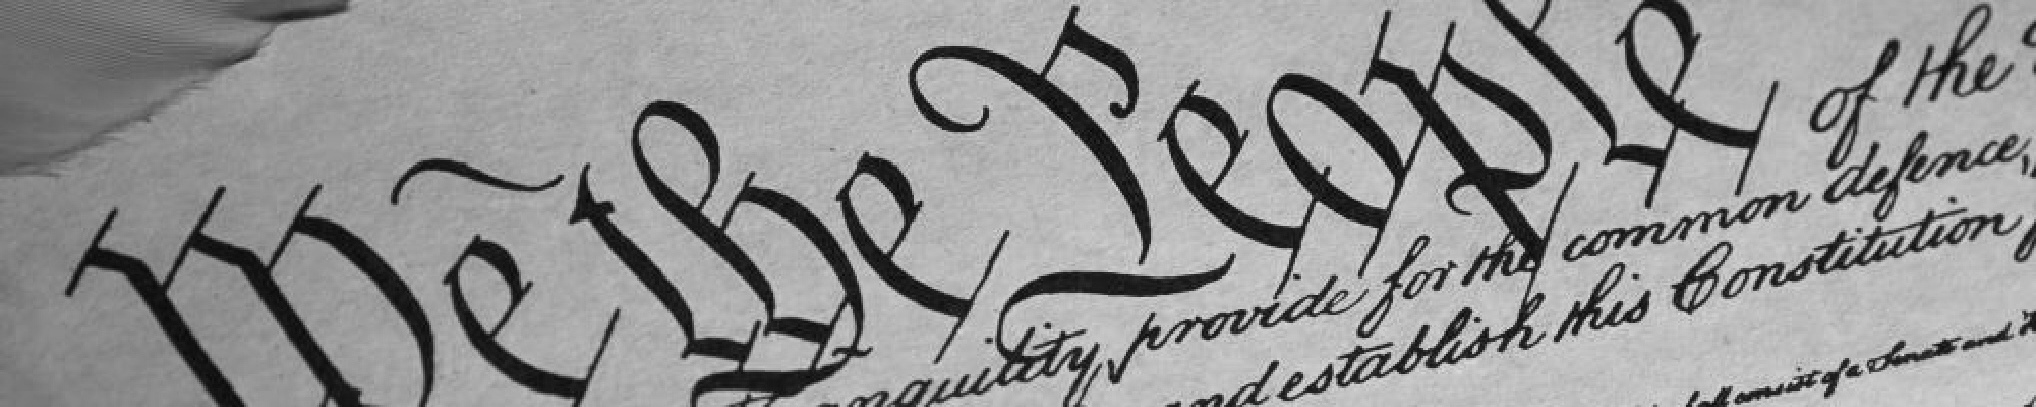 We the People of the
anquility, provide for the common defence,
and establish this Constitution
all consist of a Senate and